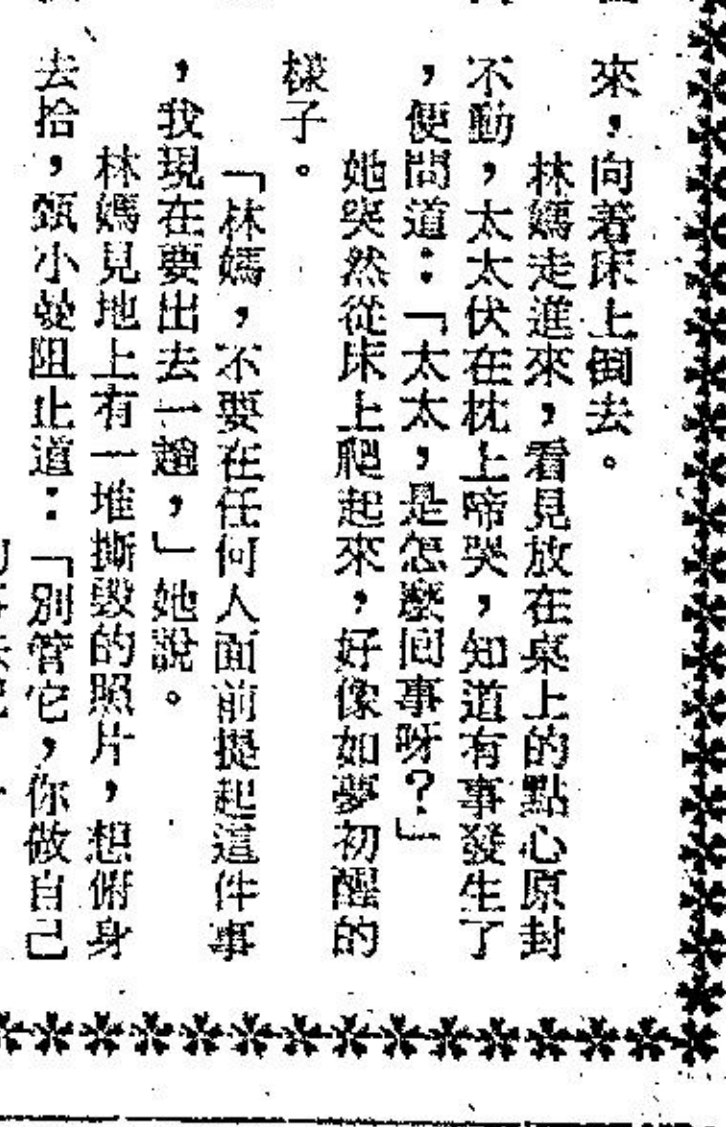 來，向着床上倒去。
林媽走進來，看見放在桌上的點心原封
不動，太太伏在枕上啼哭，知道有事發生了
，便問道：「太太，是怎麼回事呀？」
她突然從床上爬起來，好像如夢初醒的
樣子。
「林媽，不要在任何人面前提起這件事
，我現在要出去一趟，」她說。
林媽見地上有一堆撕毀的照片，想俯身
去拾，甄小曼阻止道：「別管它，你做自己